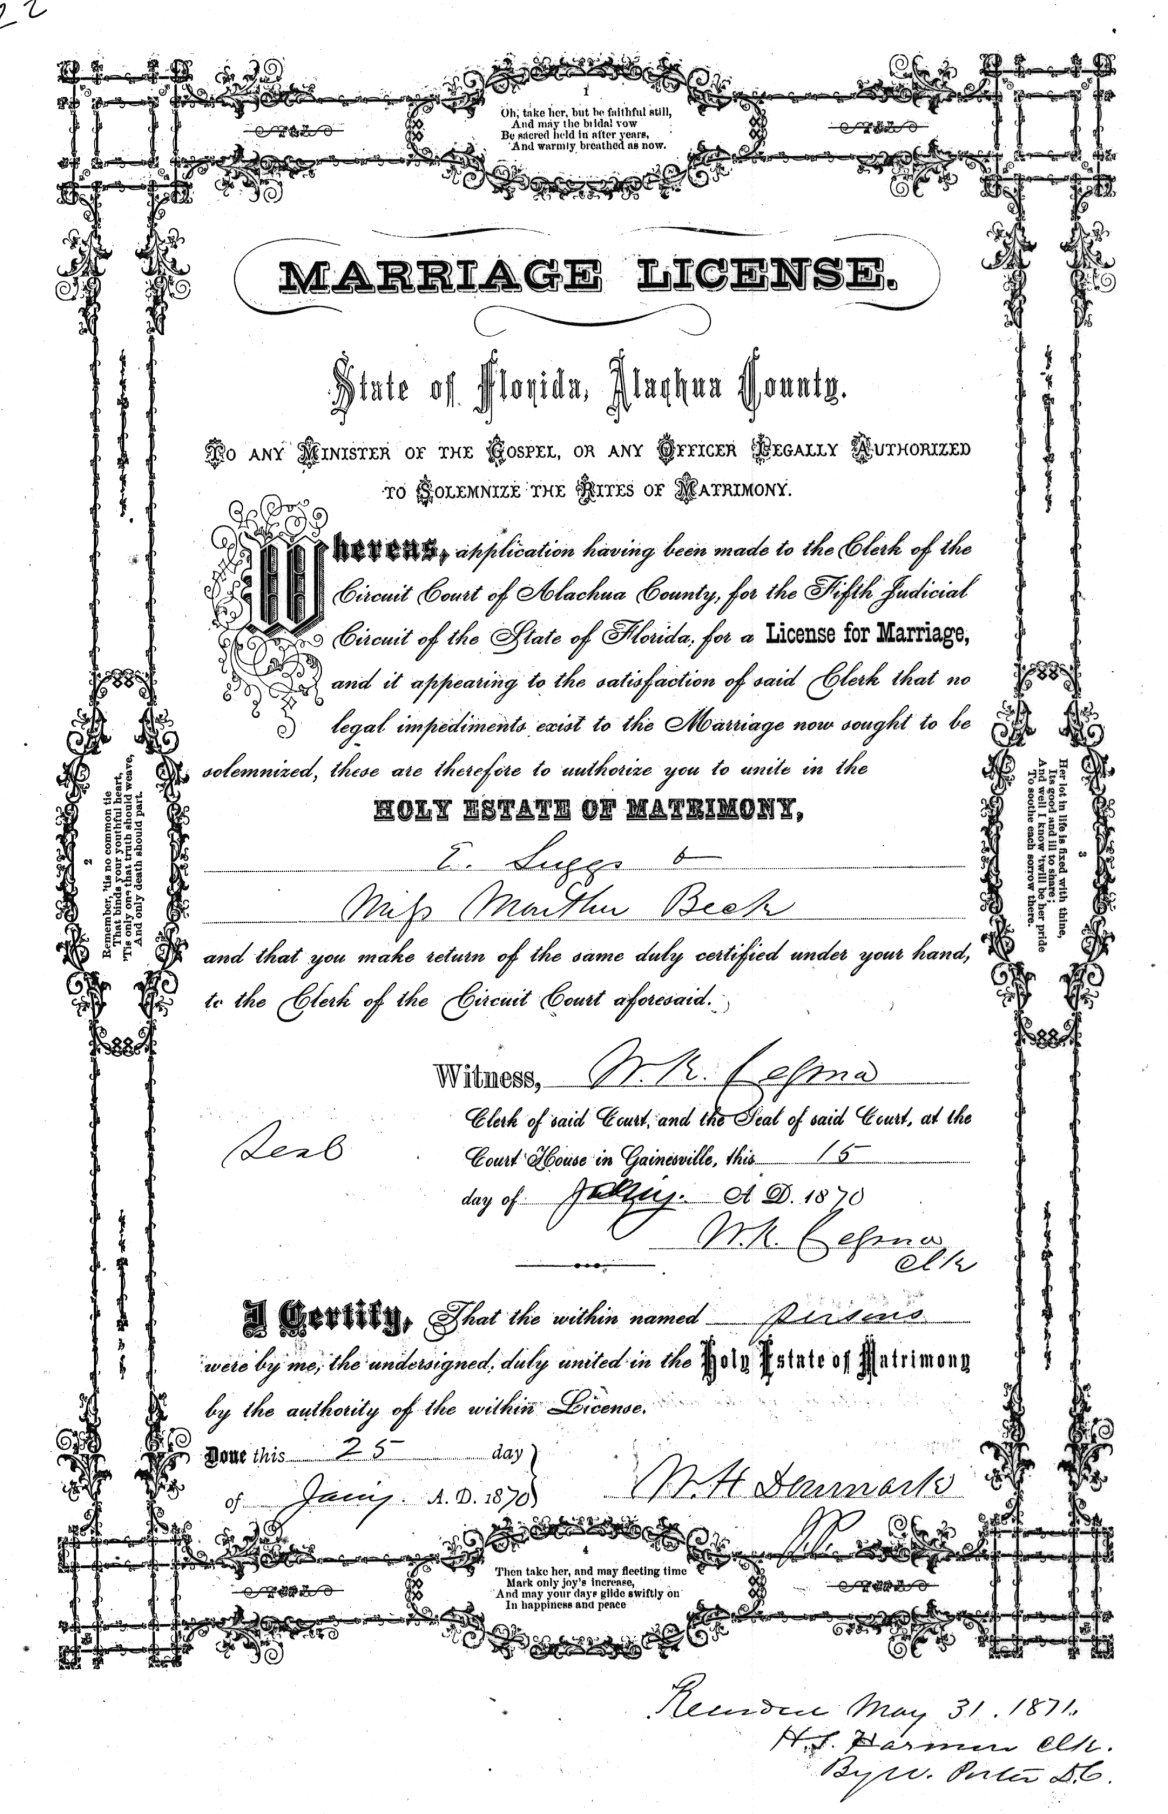 22
1
Oh, take her, but be faithful still,
And may the bridal vow
Be sacred held in after years,
And warmly breathed as now.
MARRIAGE LICENSE.
State of Florida, Alachua County.
TO ANY MINISTER OF THE GOSPEL, OR ANY OFFICER LEGALLY AUTHORIZED
TO SOLEMNIZE THE RITES OF MATRIMONY.
Whereas, application having been made to the Clerk of the
Circuit Court of Alachua County, for the Fifth Judicial
Circuit of the State of Florida, for a License for Marriage,
and it appearing to the satisfaction of said Clerk that no
legal impediments exist to the Marriage now sought to be
solemnized, these are therefore to authorize you to unite in the
HOLY ESTATE OF MATRIMONY,
E. Suggs &
Miss Martha Beck
and that you make return of the same duly certified under your hand,
to the Clerk of the Circuit Court aforesaid.
2
Remember, 'tis no common tie
That binds your youthful heart,
'Tis only one that truth should weave,
And only death should part.
3
Her lot in life is fixed with thine,
Its good and ill to share;
And well I know 'twill be her pride
To soothe each sorrow there.
Witness, W. K. Cessna
Clerk of said Court, and the Seal of said Court, at the
Seal
Court House in Gainesville, this 15
day of Jany. A D. 1870
W. K. Cessna
Clk
I Certify, That the within named persons
were by me, the undersigned, duly united in the Holy Estate of Matrimony
by the authority of the within License.
Done this 25 day
of Jany. A. D. 1870
W. H Denmark
J.P.
4
Then take her, and may fleeting time
Mark only joy's increase,
And may your days glide swiftly on
In happiness and peace
May 31. 1871.
Harmon Clk.
By W. Porter D.C.